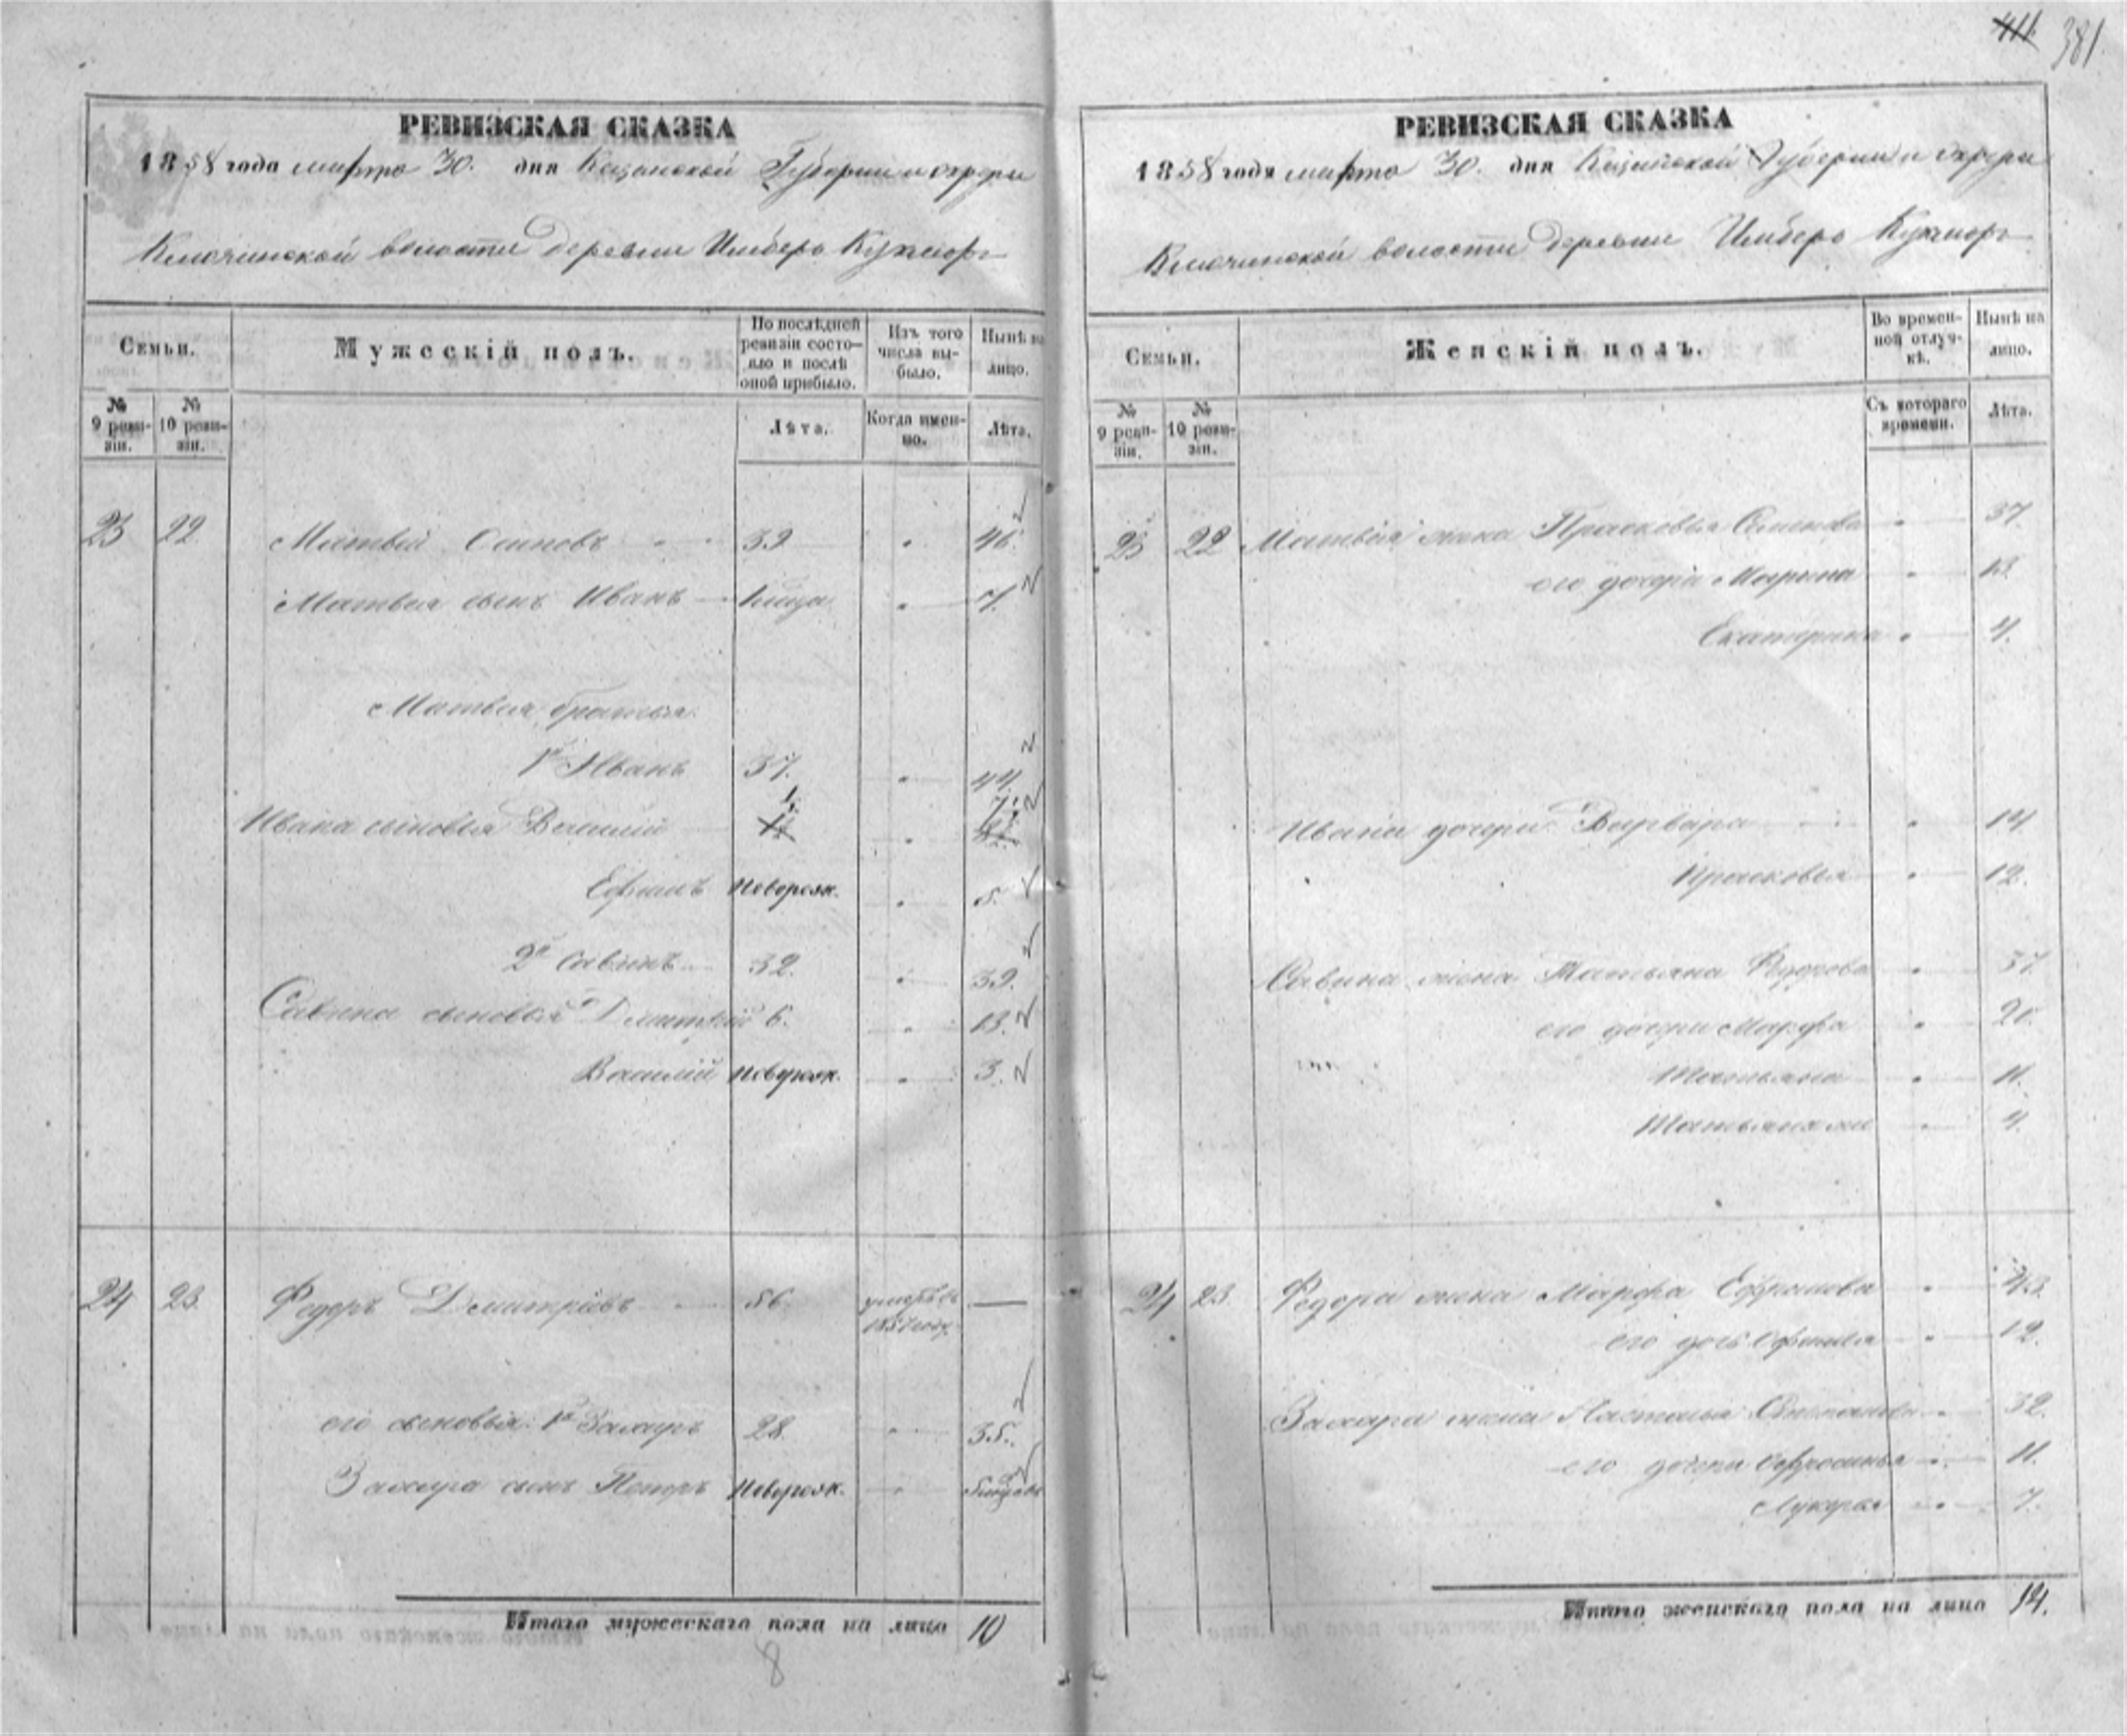 411 381
РЕВИЗСКАЯ СКАЗКА
1858 года марта 30. дня Казанской Губернии и округи
Ключинской волости деревни Имберь Кужнорг
Семьи.
Мужескій полъ.
По послѣдней ревизіи состояло и послѣ оной прибыло.
Изъ того числа выбыло.
Нынѣ на лицо.
№ 9 ревизіи.
№ 10 ревизіи.
Лѣта.
Когда именно.
Лѣта.
23 22 Матвей Осиповъ 39 46.
Матвея сынъ Иванъ 7.
Матвея братья:
1й Иванъ 37. 44.
Ивана сыновья Василій 1. 7.
Ефимъ новорож. 5.
2й Савинъ 32. 39.
Савина сыновья Дмитрій 6. 13.
Василій новорож. 3.
24 23. Федоръ Дмитріевъ 56. умеръ въ 1857 году —
его сыновья: 1й Захаръ 28. 35.
Захара сынъ Петръ новорож.
Итого мужескаго пола на лицо 10
8
РЕВИЗСКАЯ СКАЗКА
1858 года марта 30. дня Казанской Губернии и округи
Ключинской волости деревни Имберь Кужнорг
Семьи.
Женскій полъ.
Во временной отлучкѣ.
Нынѣ на лицо.
№ 9 ревизіи.
№ 10 ревизіи.
Съ котораго времени.
Лѣта.
23 22 Матвея жена Прасковья Семенова 37
его дочери Марина 13.
Екатерина 4.
Ивана дочери Варвара 14
Прасковья 12.
Савина жена Татьяна Федорова 37.
его дочери Марфа 20.
Татьяна 11.
Татьяна 4.
24 23. Федора жена Марфа Ефремова 43.
его дочь 12.
Захара жена Настасья Степанова 32.
его дочери Ефросинья 11.
Лукерья 7.
Итого женскаго пола на лицо 14.